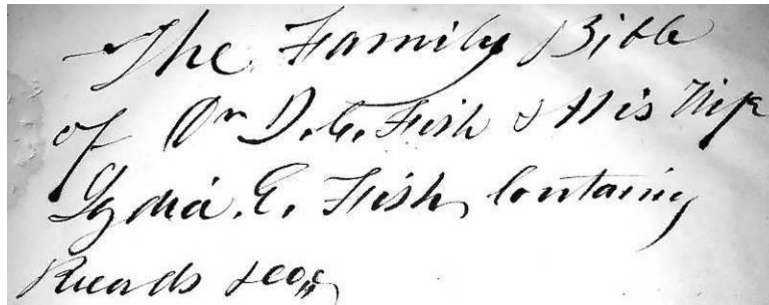 The Family Bible
of Dr D. G. Fish & His Wife
Lydia. E. Fish, Containing
Records &c